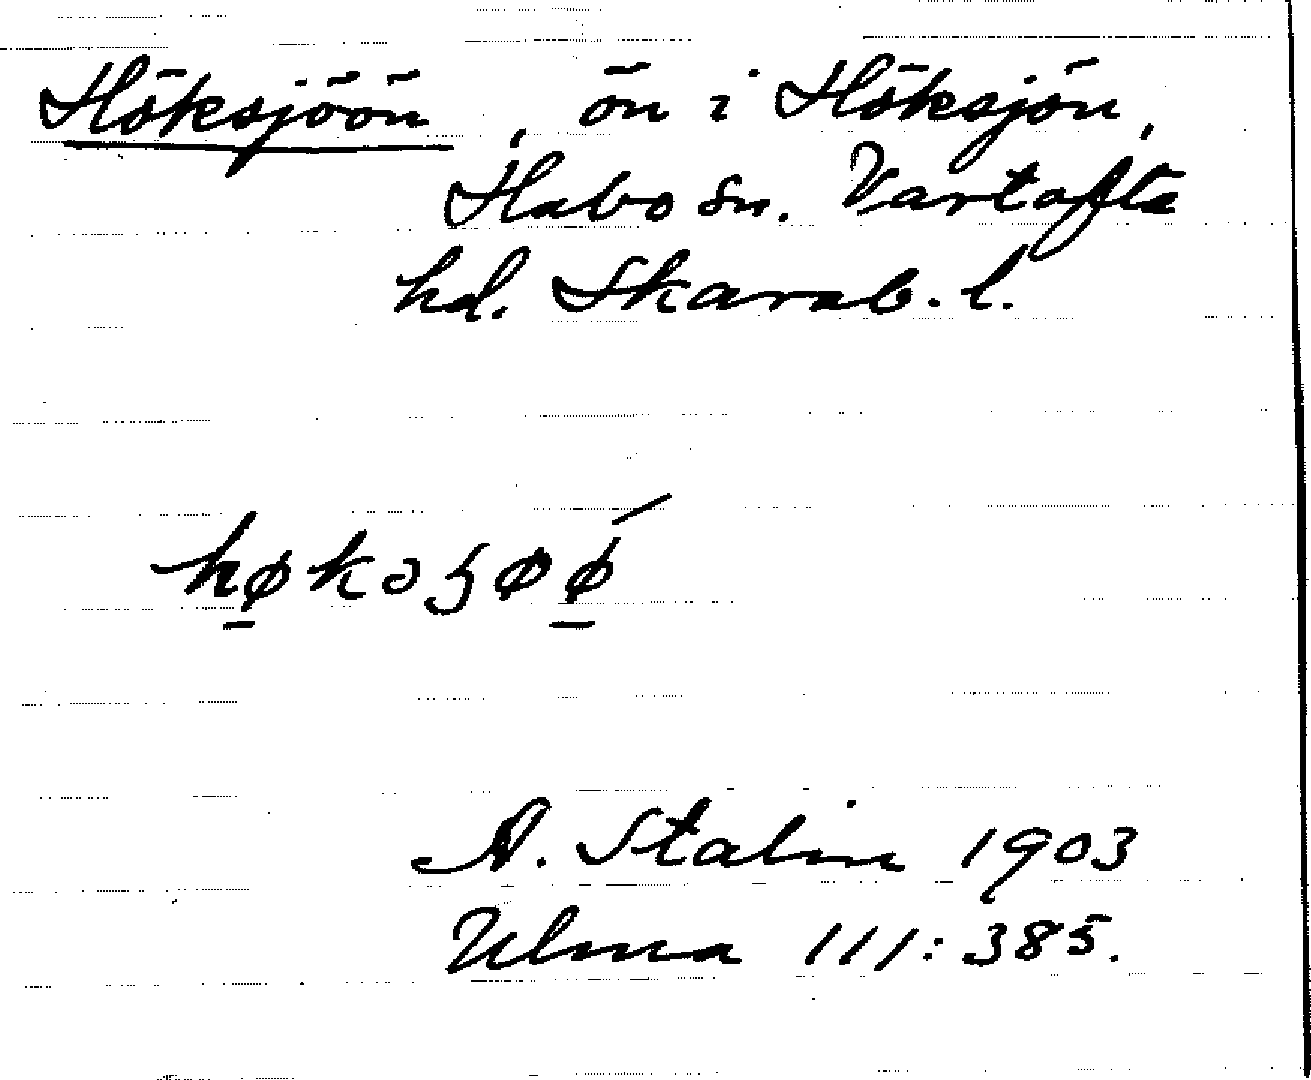 Höksjöön, ön i Höksjön,
Habo sn. Vartofta
hd. Skarab. l.
høkɔʒøǿ
A. Stalin 1903
Ulma 111:385.